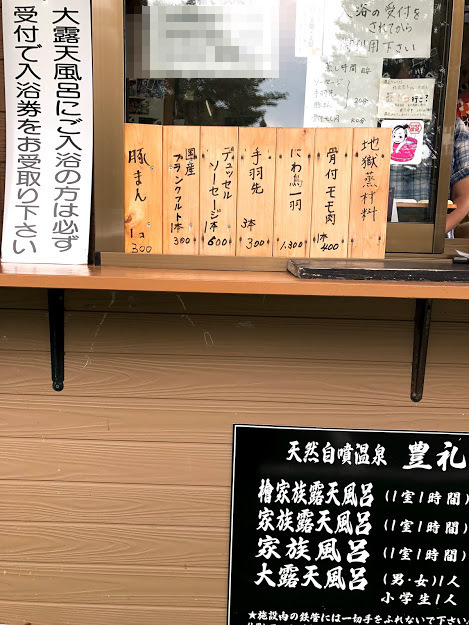 大露天風呂にご入浴の方は必ず
受付で入浴券をお受取り下さい
浴の受付を
されてから
利用下さい
蒸し時間
ソーセージ
手羽先
20分
地獄蒸材料
骨付モモ肉
1本
400
にわ鳥一羽
1,300
手羽先
3本
300
デュッセル
ソーセージ
1本
600
国産
フランクフルト
1本
300
豚まん
1コ
300
天然自噴温泉 豊礼
檜家族露天風呂(1室1時間)
家族露天風呂(1室1時間)
家族風呂(1室1時間)
大露天風呂(男・女)1人
小学生1人
★施設内の鉄管には一切手をふれないで下さい